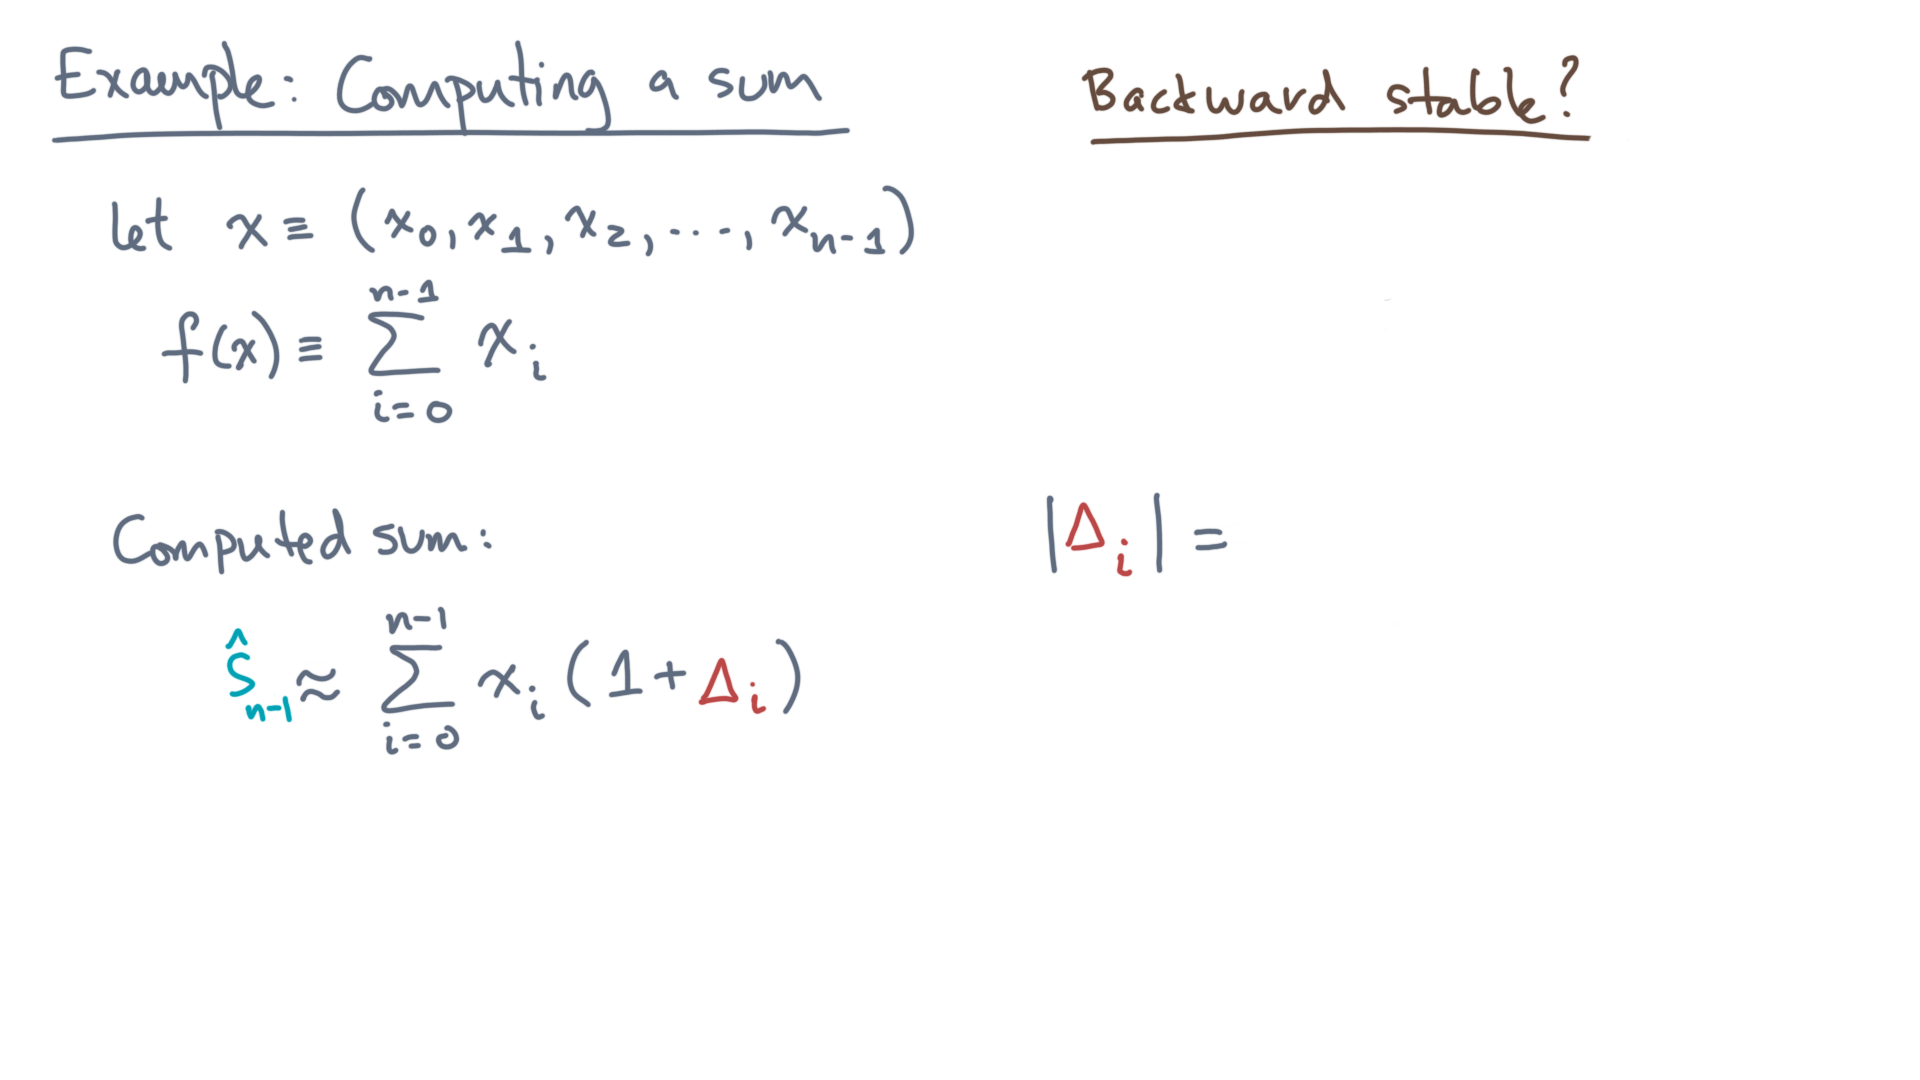 Example: Computing a sum
Let x ≡ (x₀, x₁, x₂, ..., xₙ₋₁)
f(x) ≡ ∑_{i=0}^{n-1} xᵢ
Computed sum:
ŝₙ₋₁ ≈ ∑_{i=0}^{n-1} xᵢ (1 + Δᵢ)
Backward stable?
|Δᵢ| =